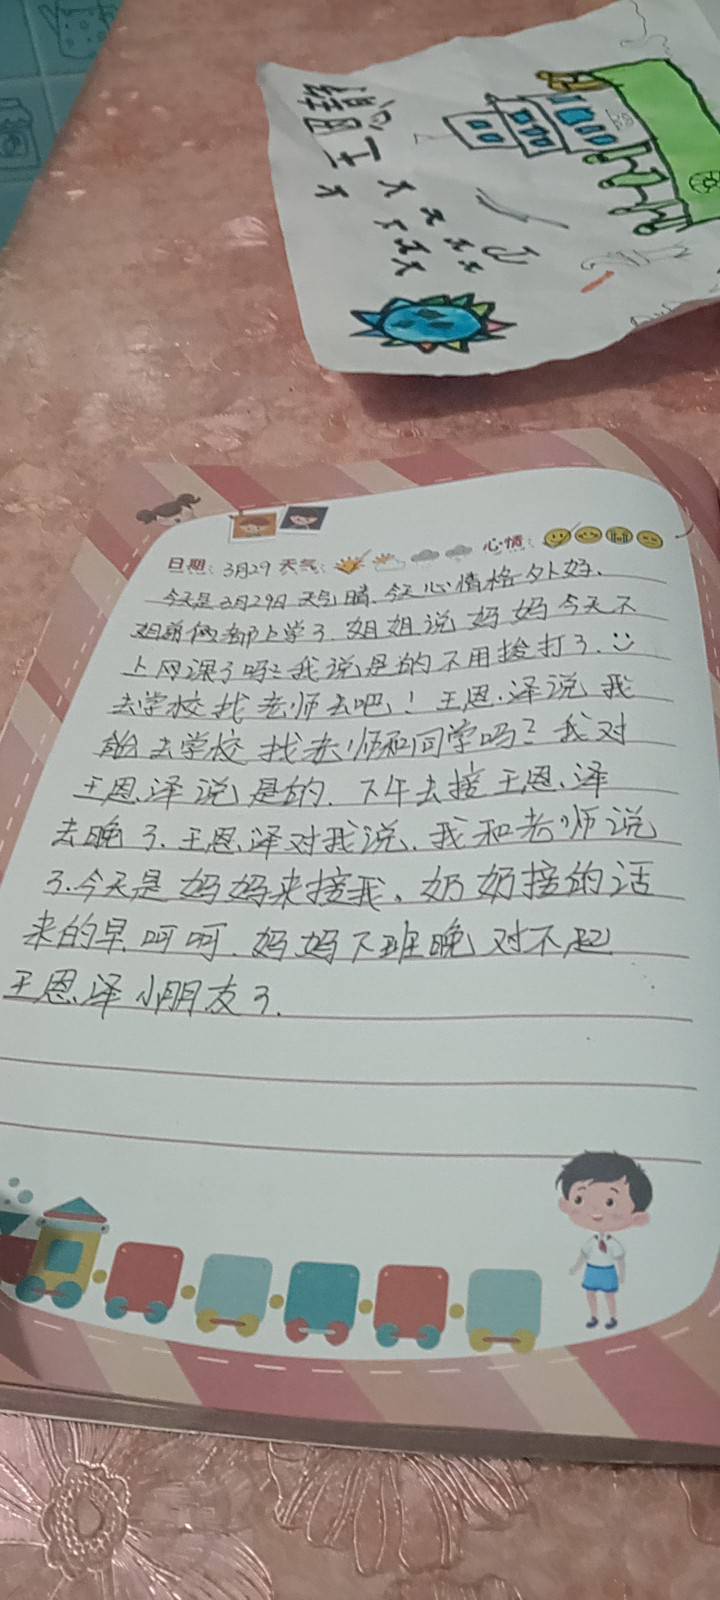 日期：3月29 天气： 心情：
今天是3月29日 天气晴.今天心情格外好.
姐弟俩都上学了.姐姐说妈妈今天不
上网课了吗?我说是的不用打了.
去学校找老师去吧！王恩泽说我
能去学校找老师和同学吗?我对
王恩泽说是的.下午去接王恩泽
去晚了.王恩泽对我说.我和老师说
了.今天是妈妈来接我、奶奶接的话
来的早呵呵.妈妈下班晚对不起
王恩泽小朋友了.